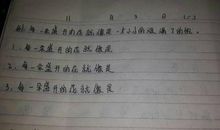 11 3
例:每一朵盛开的花就像是一张小小的笑脸。
1、每一朵盛开的花就像是
2、每一朵盛开的花就像是
3、每一朵盛开的花就像是